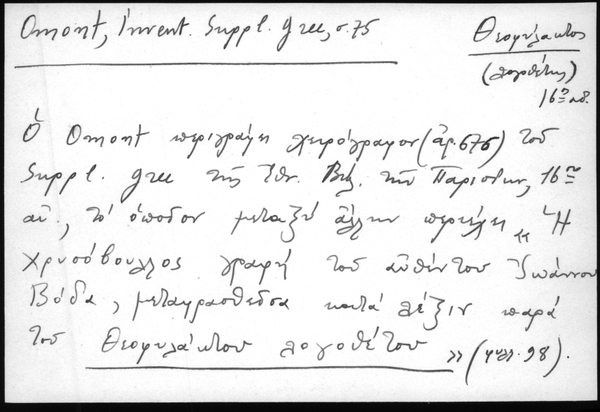 Omont, Invent. Suppl. grec, σ. 75
Θεοφύλακτος
(λογοθέτης)
16ος αἰ.
Ὁ Omont περιγράφει χειρόγραφον (ἀρ. 675) τοῦ
Suppl. grec τῆς Ἐθν. Βιβ. τῶν Παρισίων, 16ου
αἰ., τὸ ὁποῖον μεταξὺ ἄλλων περιέχει „Ἡ
χρυσόβουλλος γραφὴ τοῦ αὐθέντου Ἰωάννου
Βόδα, μεταγρασθεῖσα κατὰ λέξιν παρὰ
τοῦ Θεοφυλάκτου λογοθέτου» (φύλ. 98).